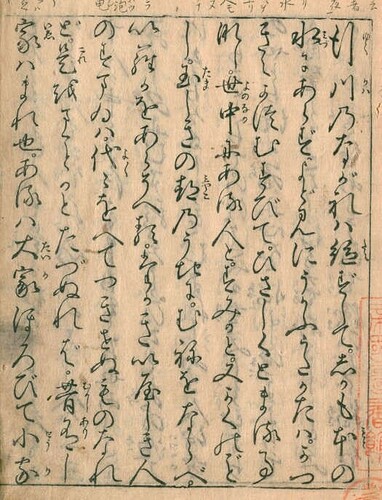 行川乃ながれハ絶ずして。しかも本の
水にあらず。よどみにうかふうたかたハ。かつ
きえかつむすびて。ひさしくとまる事
なし。世中にある人とすみかと。又かくのごと
し。玉しきの都乃うちに。むねをならべ。
いらかをあらそへる。たかきいやしき人
のすまゐハ。代々をへてつきせぬものなれ
ど。是をまことかとたづぬれば。昔有し
家ハまれ也。あるハ大家ほろびて小家